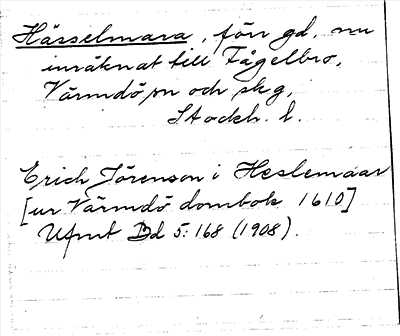 Hässelmara, förr gd, nu
inräknat till Fågelbro,
Värmdö sn och skg,
Stockh. l.
Erich Jörenson i Heslemaar
[ur Värmdö dombok 1610]
Ufmt Bd 5:168 (1908).